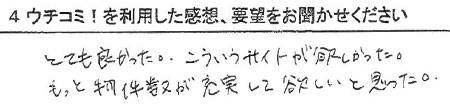 4 ウチコミ！を利用した感想、要望をお聞かせください
とても良かった。こういうサイトが欲しかった。
もっと物件数が充実して欲しいと思った。